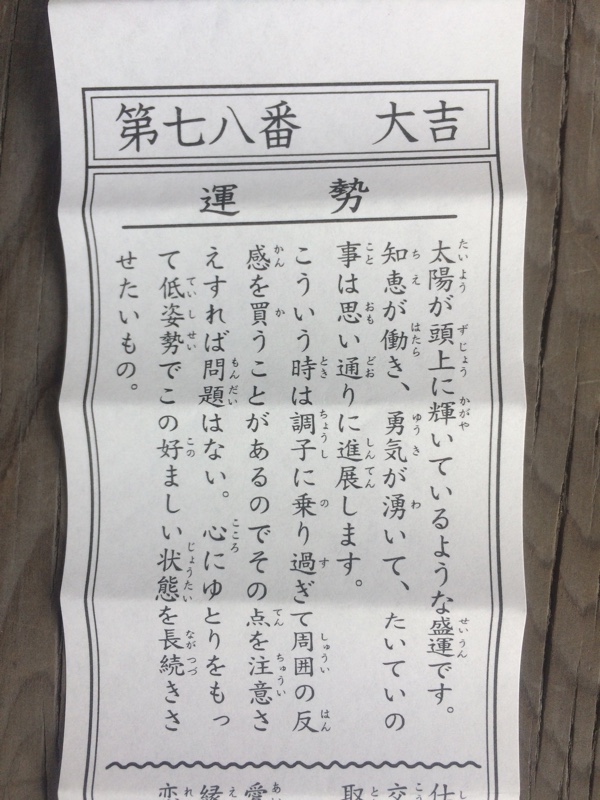 第七八番　大吉
運　勢
太陽が頭上に輝いているような盛運です。
知恵が働き、勇気が湧いて、たいていの
事は思い通りに進展します。
こういう時は調子に乗り過ぎて周囲の反
感を買うことがあるのでその点を注意さ
えすれば問題はない。心にゆとりをもっ
て低姿勢でこの好ましい状態を長続きさ
せたいもの。